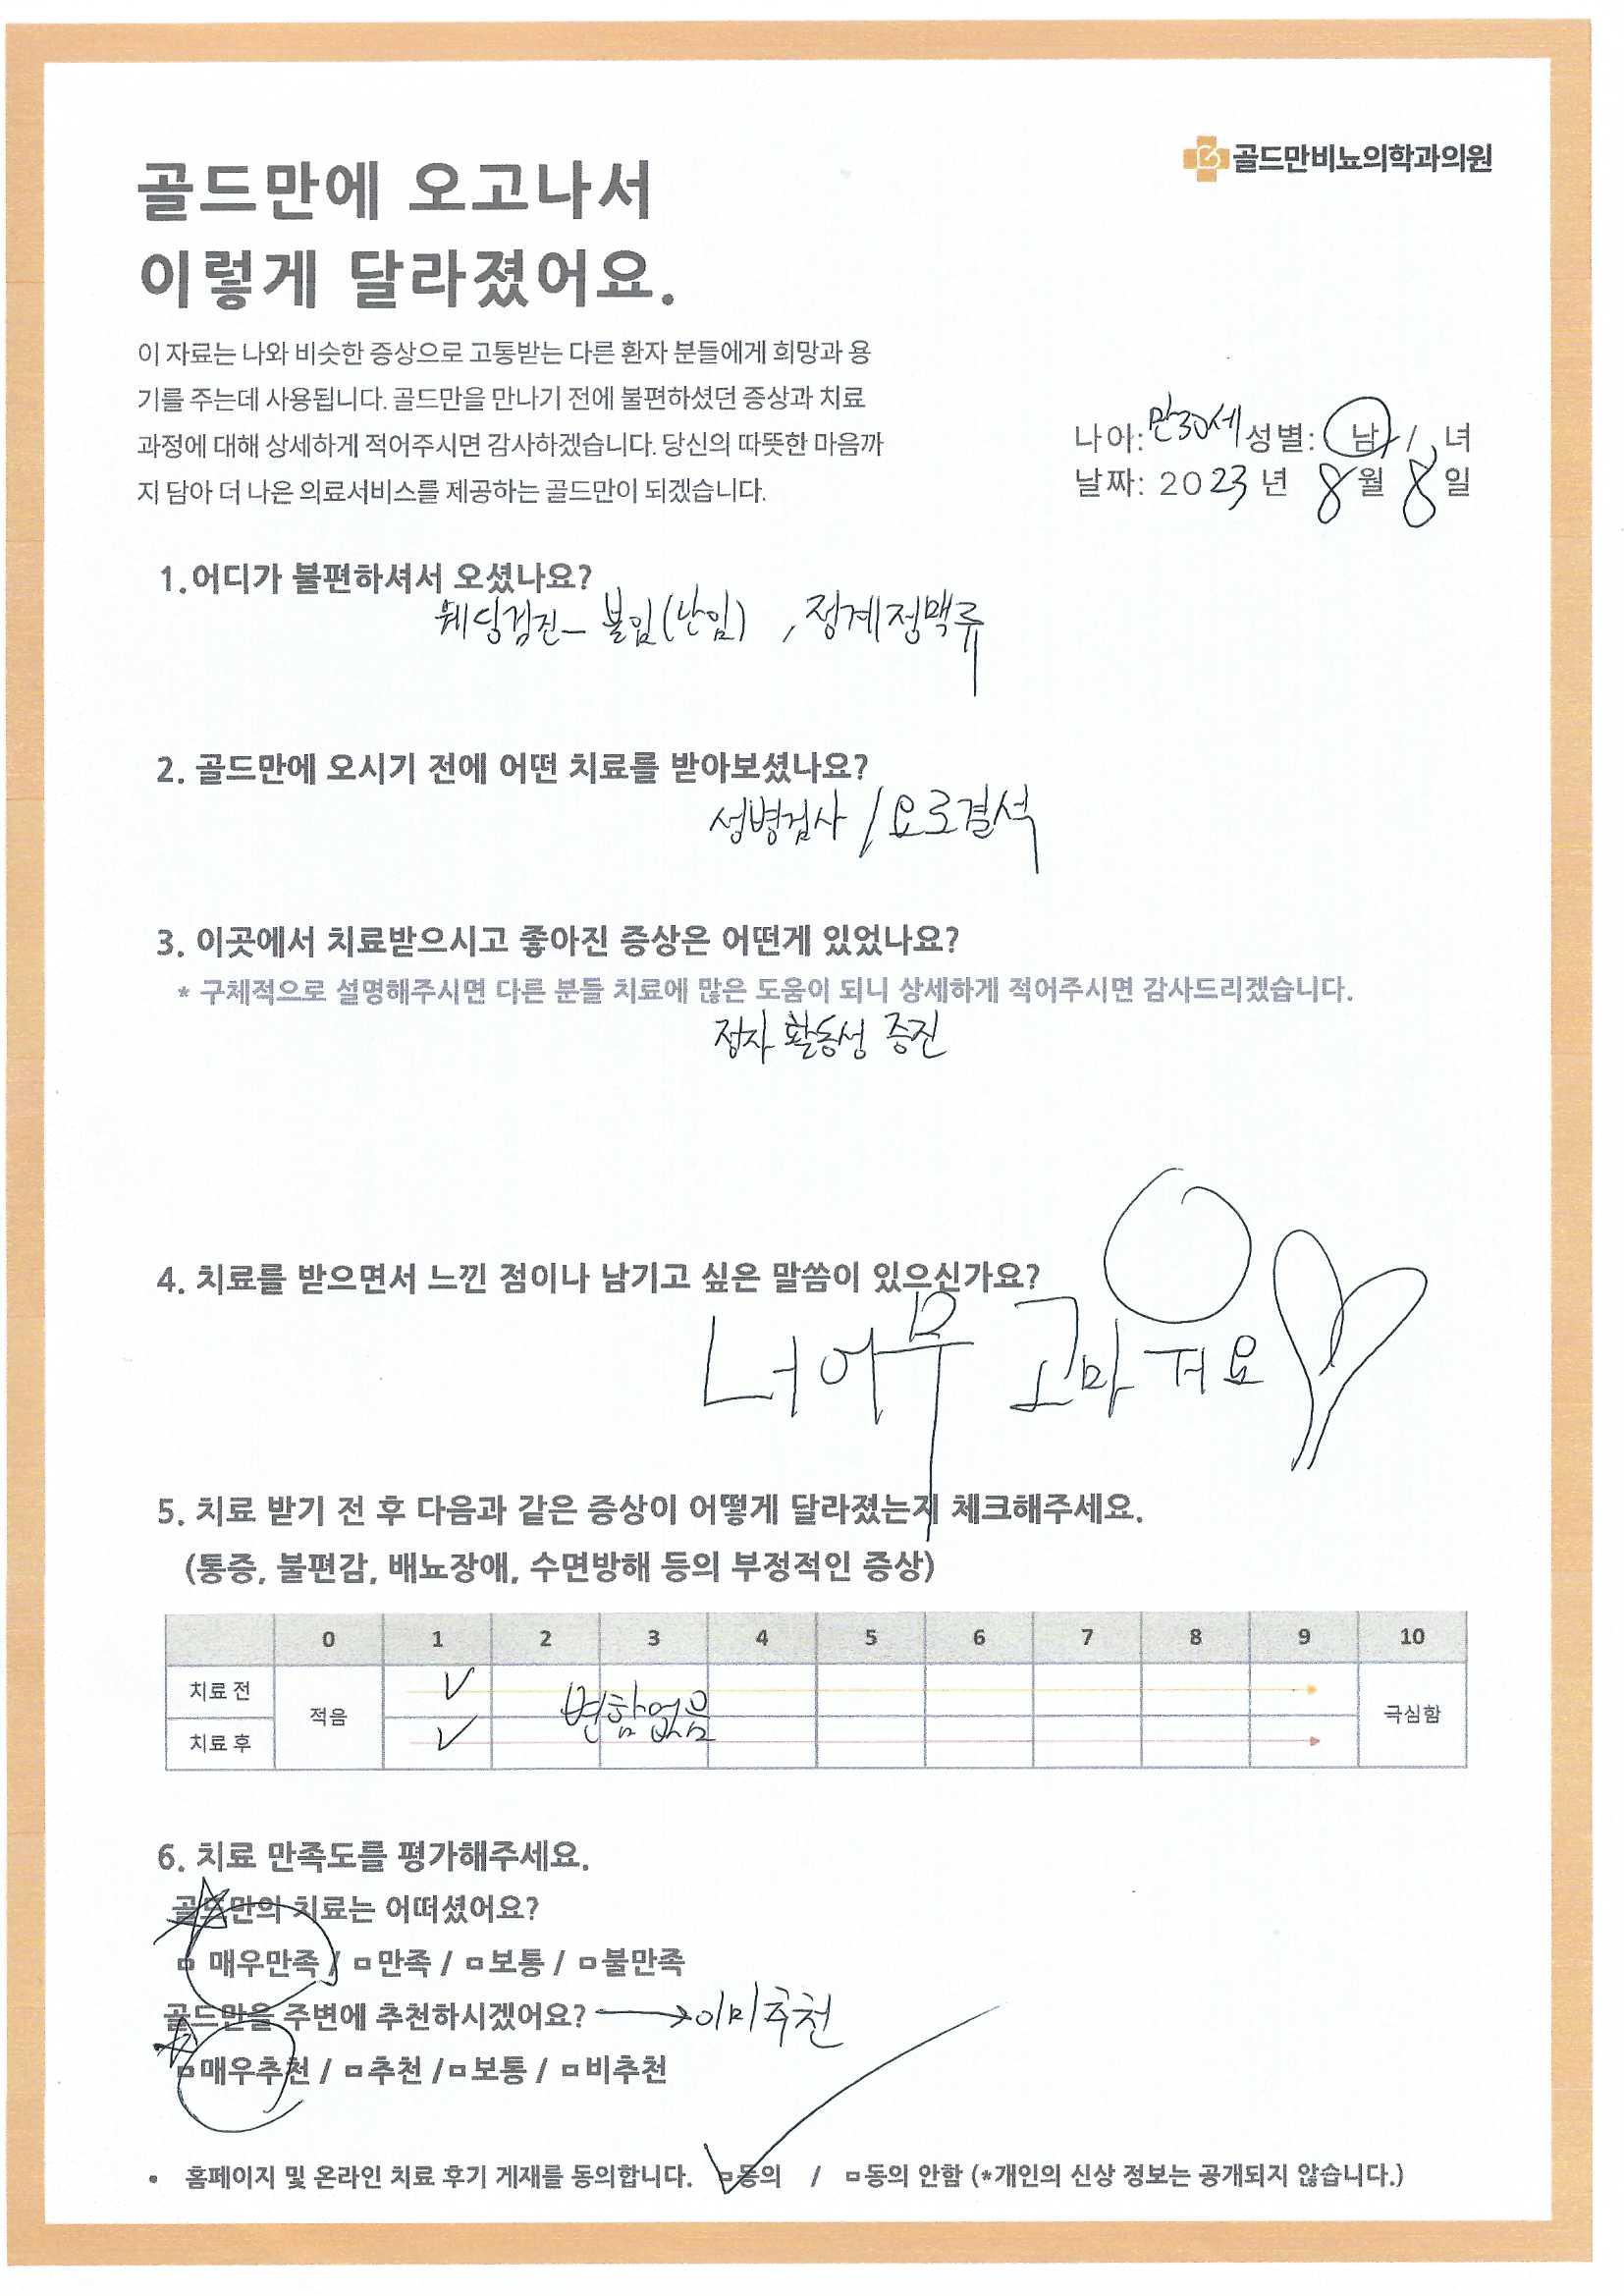 골드만비뇨의학과의원
골드만에 오고나서
이렇게 달라졌어요.
이 자료는 나와 비슷한 증상으로 고통받는 다른 환자 분들에게 희망과 용
기를 주는데 사용됩니다. 골드만을 만나기 전에 불편하셨던 증상과 치료
과정에 대해 상세하게 적어주시면 감사하겠습니다. 당신의 따뜻한 마음까
지 담아 더 나은 의료서비스를 제공하는 골드만이 되겠습니다.
나이: 만30세 성별: 남 / 녀
날짜: 2023 년 8 월 8 일
1.어디가 불편하셔서 오셨나요?
웨딩검진_ 불임(난임) , 정계정맥류
2. 골드만에 오시기 전에 어떤 치료를 받아보셨나요?
성병검사 / 요로결석
3. 이곳에서 치료받으시고 좋아진 증상은 어떤게 있었나요?
* 구체적으로 설명해주시면 다른 분들 치료에 많은 도움이 되니 상세하게 적어주시면 감사드리겠습니다.
정자 활동성 증진
4. 치료를 받으면서 느낀 점이나 남기고 싶은 말씀이 있으신가요?
너어무 고마워요
5. 치료 받기 전 후 다음과 같은 증상이 어떻게 달라졌는지 체크해주세요.
(통증, 불편감, 배뇨장애, 수면방해 등의 부정적인 증상)
0 1 2 3 4 5 6 7 8 9 10
치료 전 ✓
적음 변함없음 극심함
치료 후 ✓
6. 치료 만족도를 평가해주세요.
골드만의 치료는 어떠셨어요?
☆ □ 매우만족 / □ 만족 / □ 보통 / □ 불만족
골드만을 주변에 추천하시겠어요? → 이미 추천
☆ □ 매우추천 / □ 추천 / □ 보통 / □ 비추천
• 홈페이지 및 온라인 치료 후기 게재를 동의합니다. ✓ □ 동의 / □ 동의 안함 (*개인의 신상 정보는 공개되지 않습니다.)